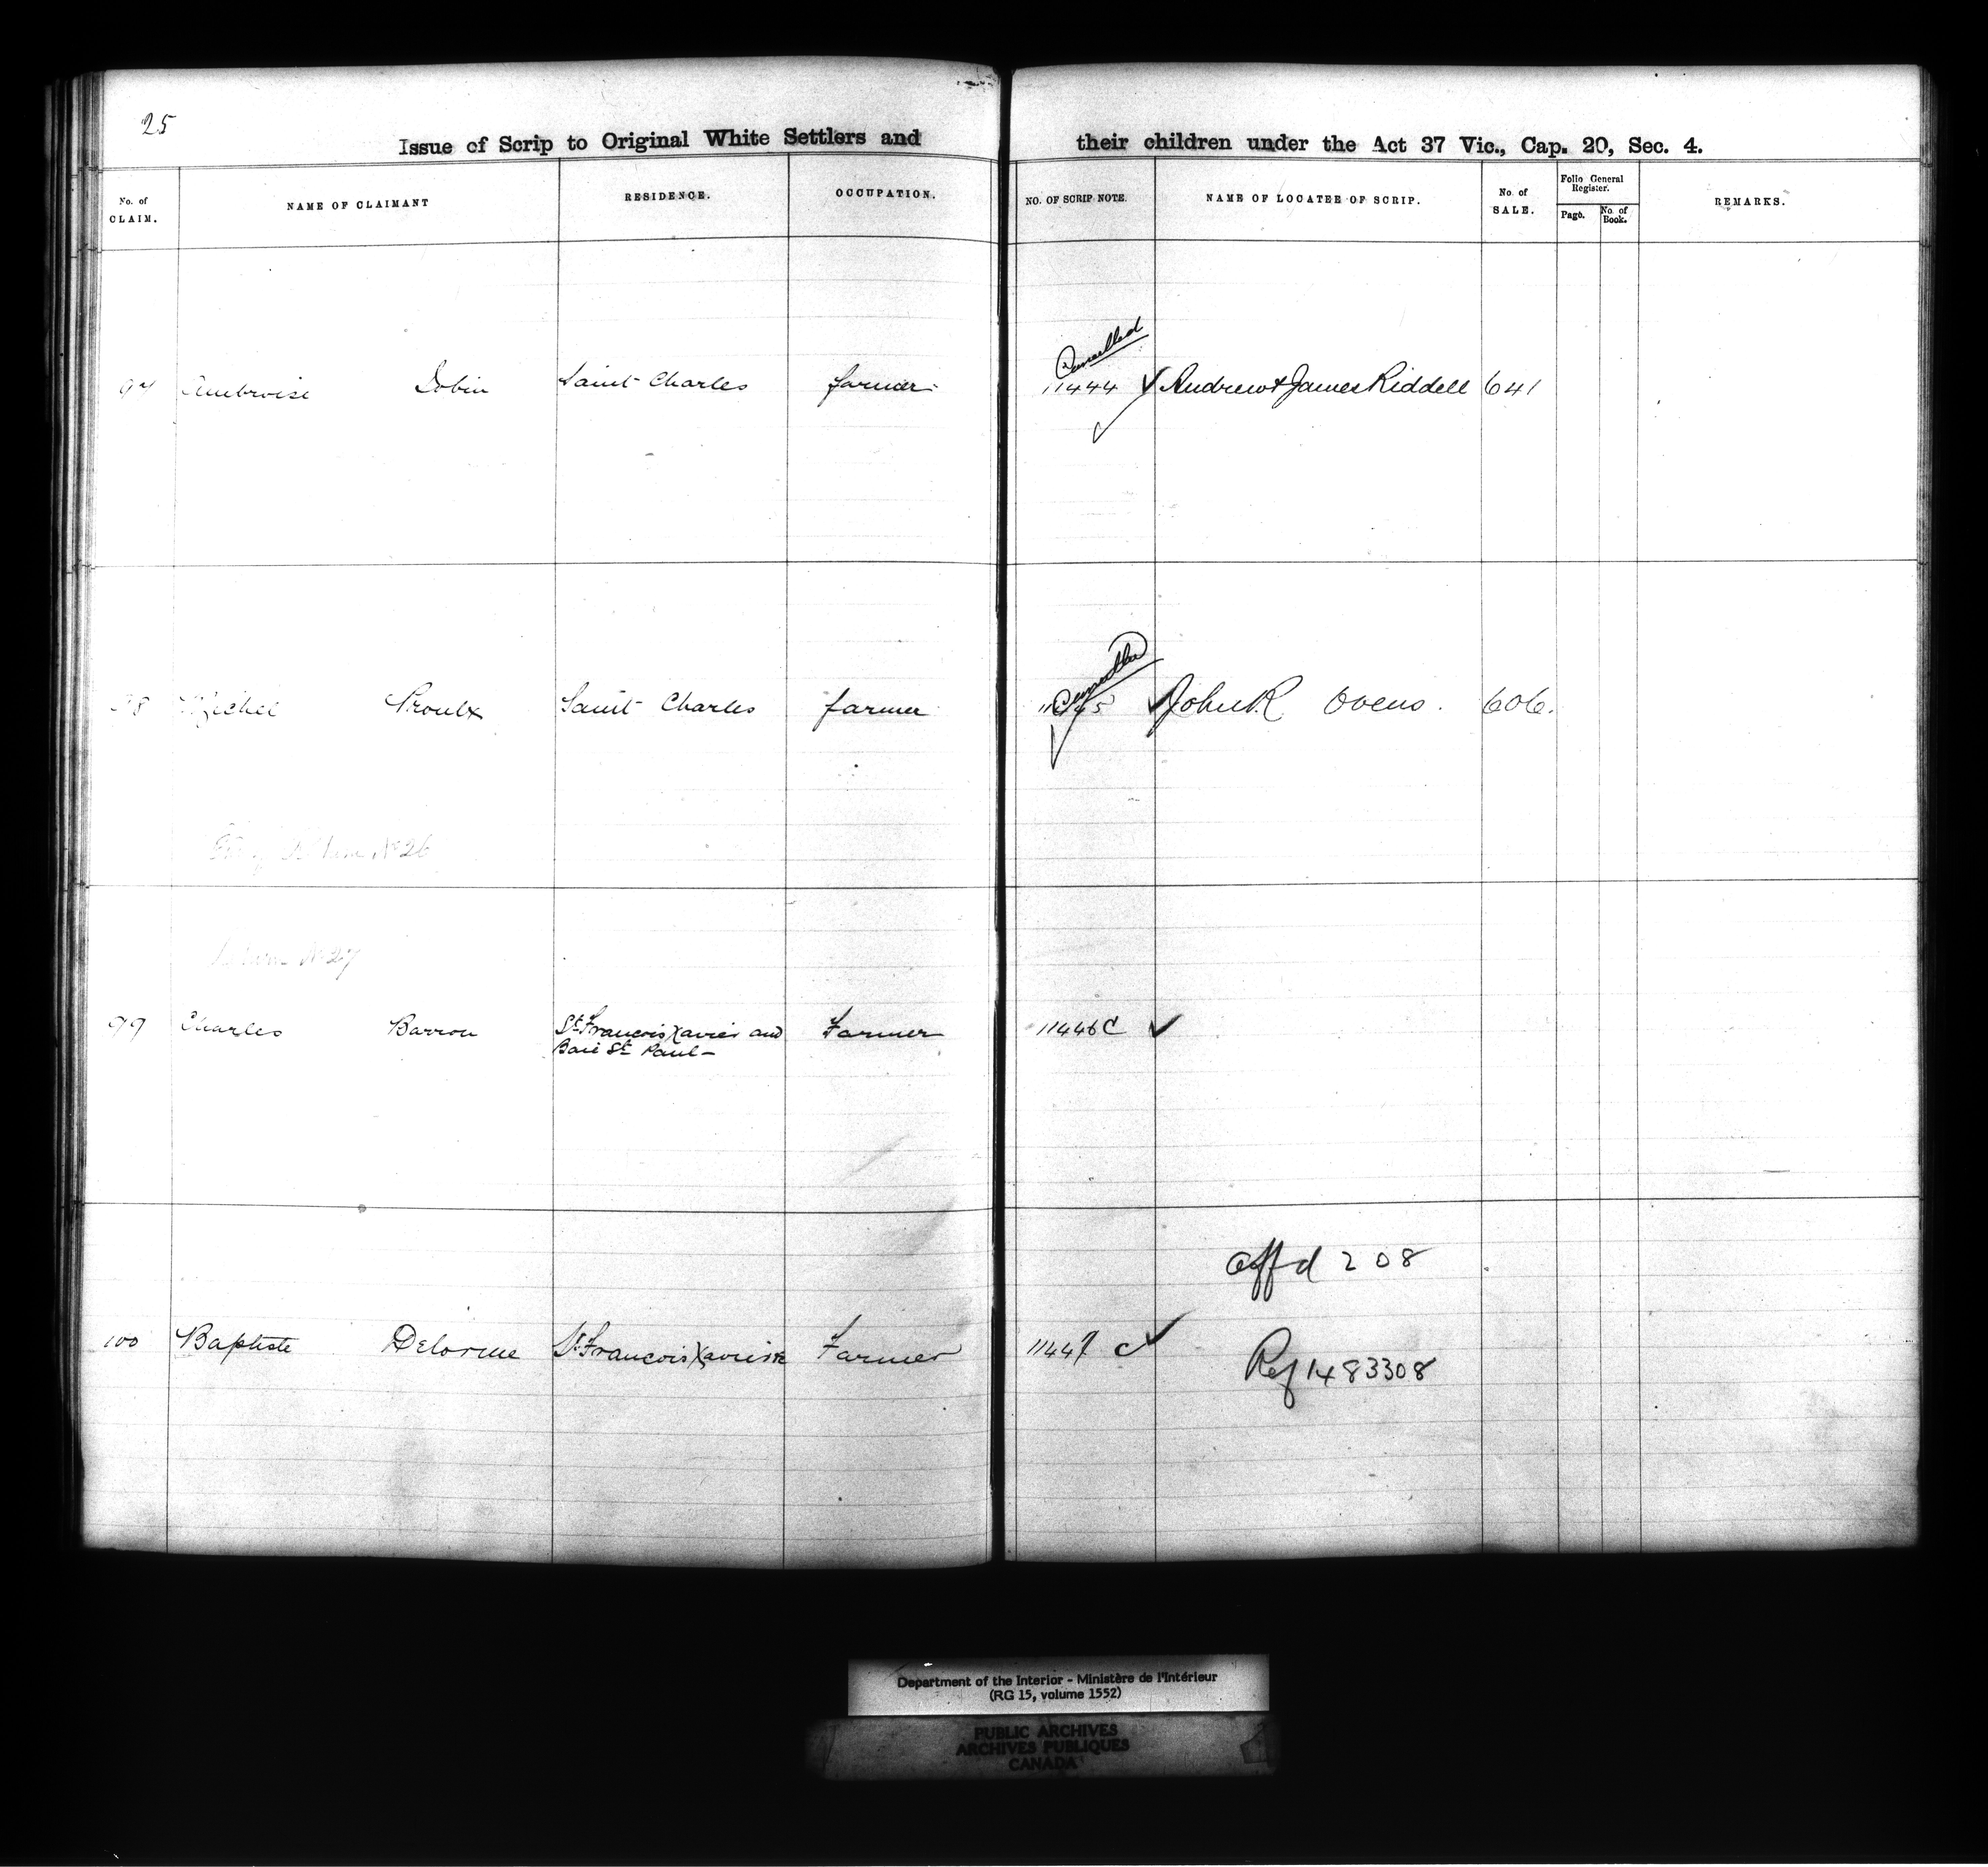 25
Issue of Scrip to Original White Settlers and their children under the Act 37 Vic., Cap. 20, Sec. 4.
No. of CLAIM. NAME OF CLAIMANT RESIDENCE. OCCUPATION. NO. OF SCRIP NOTE. NAME OF LOCATEE OF SCRIP. No. of SALE. Folio General Register. Page. No. of Book. REMARKS.
Cancelled
97 Ambroise Jobin Saint Charles farmer 11444 ✓ Andrew & James Riddell 641
Cancelled
98 Michel Proulx Saint Charles farmer 11445 ✓ John R Ovens. 606.
No 26
No 27
99 Charles Barron St. Francois Xavier and Farmer 11446 C ✓
Baie St. Paul—
Affd 208
100 Baptiste Delorme St. Francois Xavier Farmer 11447 C ✓
Ref 1483308
Department of the Interior - Ministère de l'Intérieur
(RG 15, volume 1552)
PUBLIC ARCHIVES
ARCHIVES PUBLIQUES
CANADA